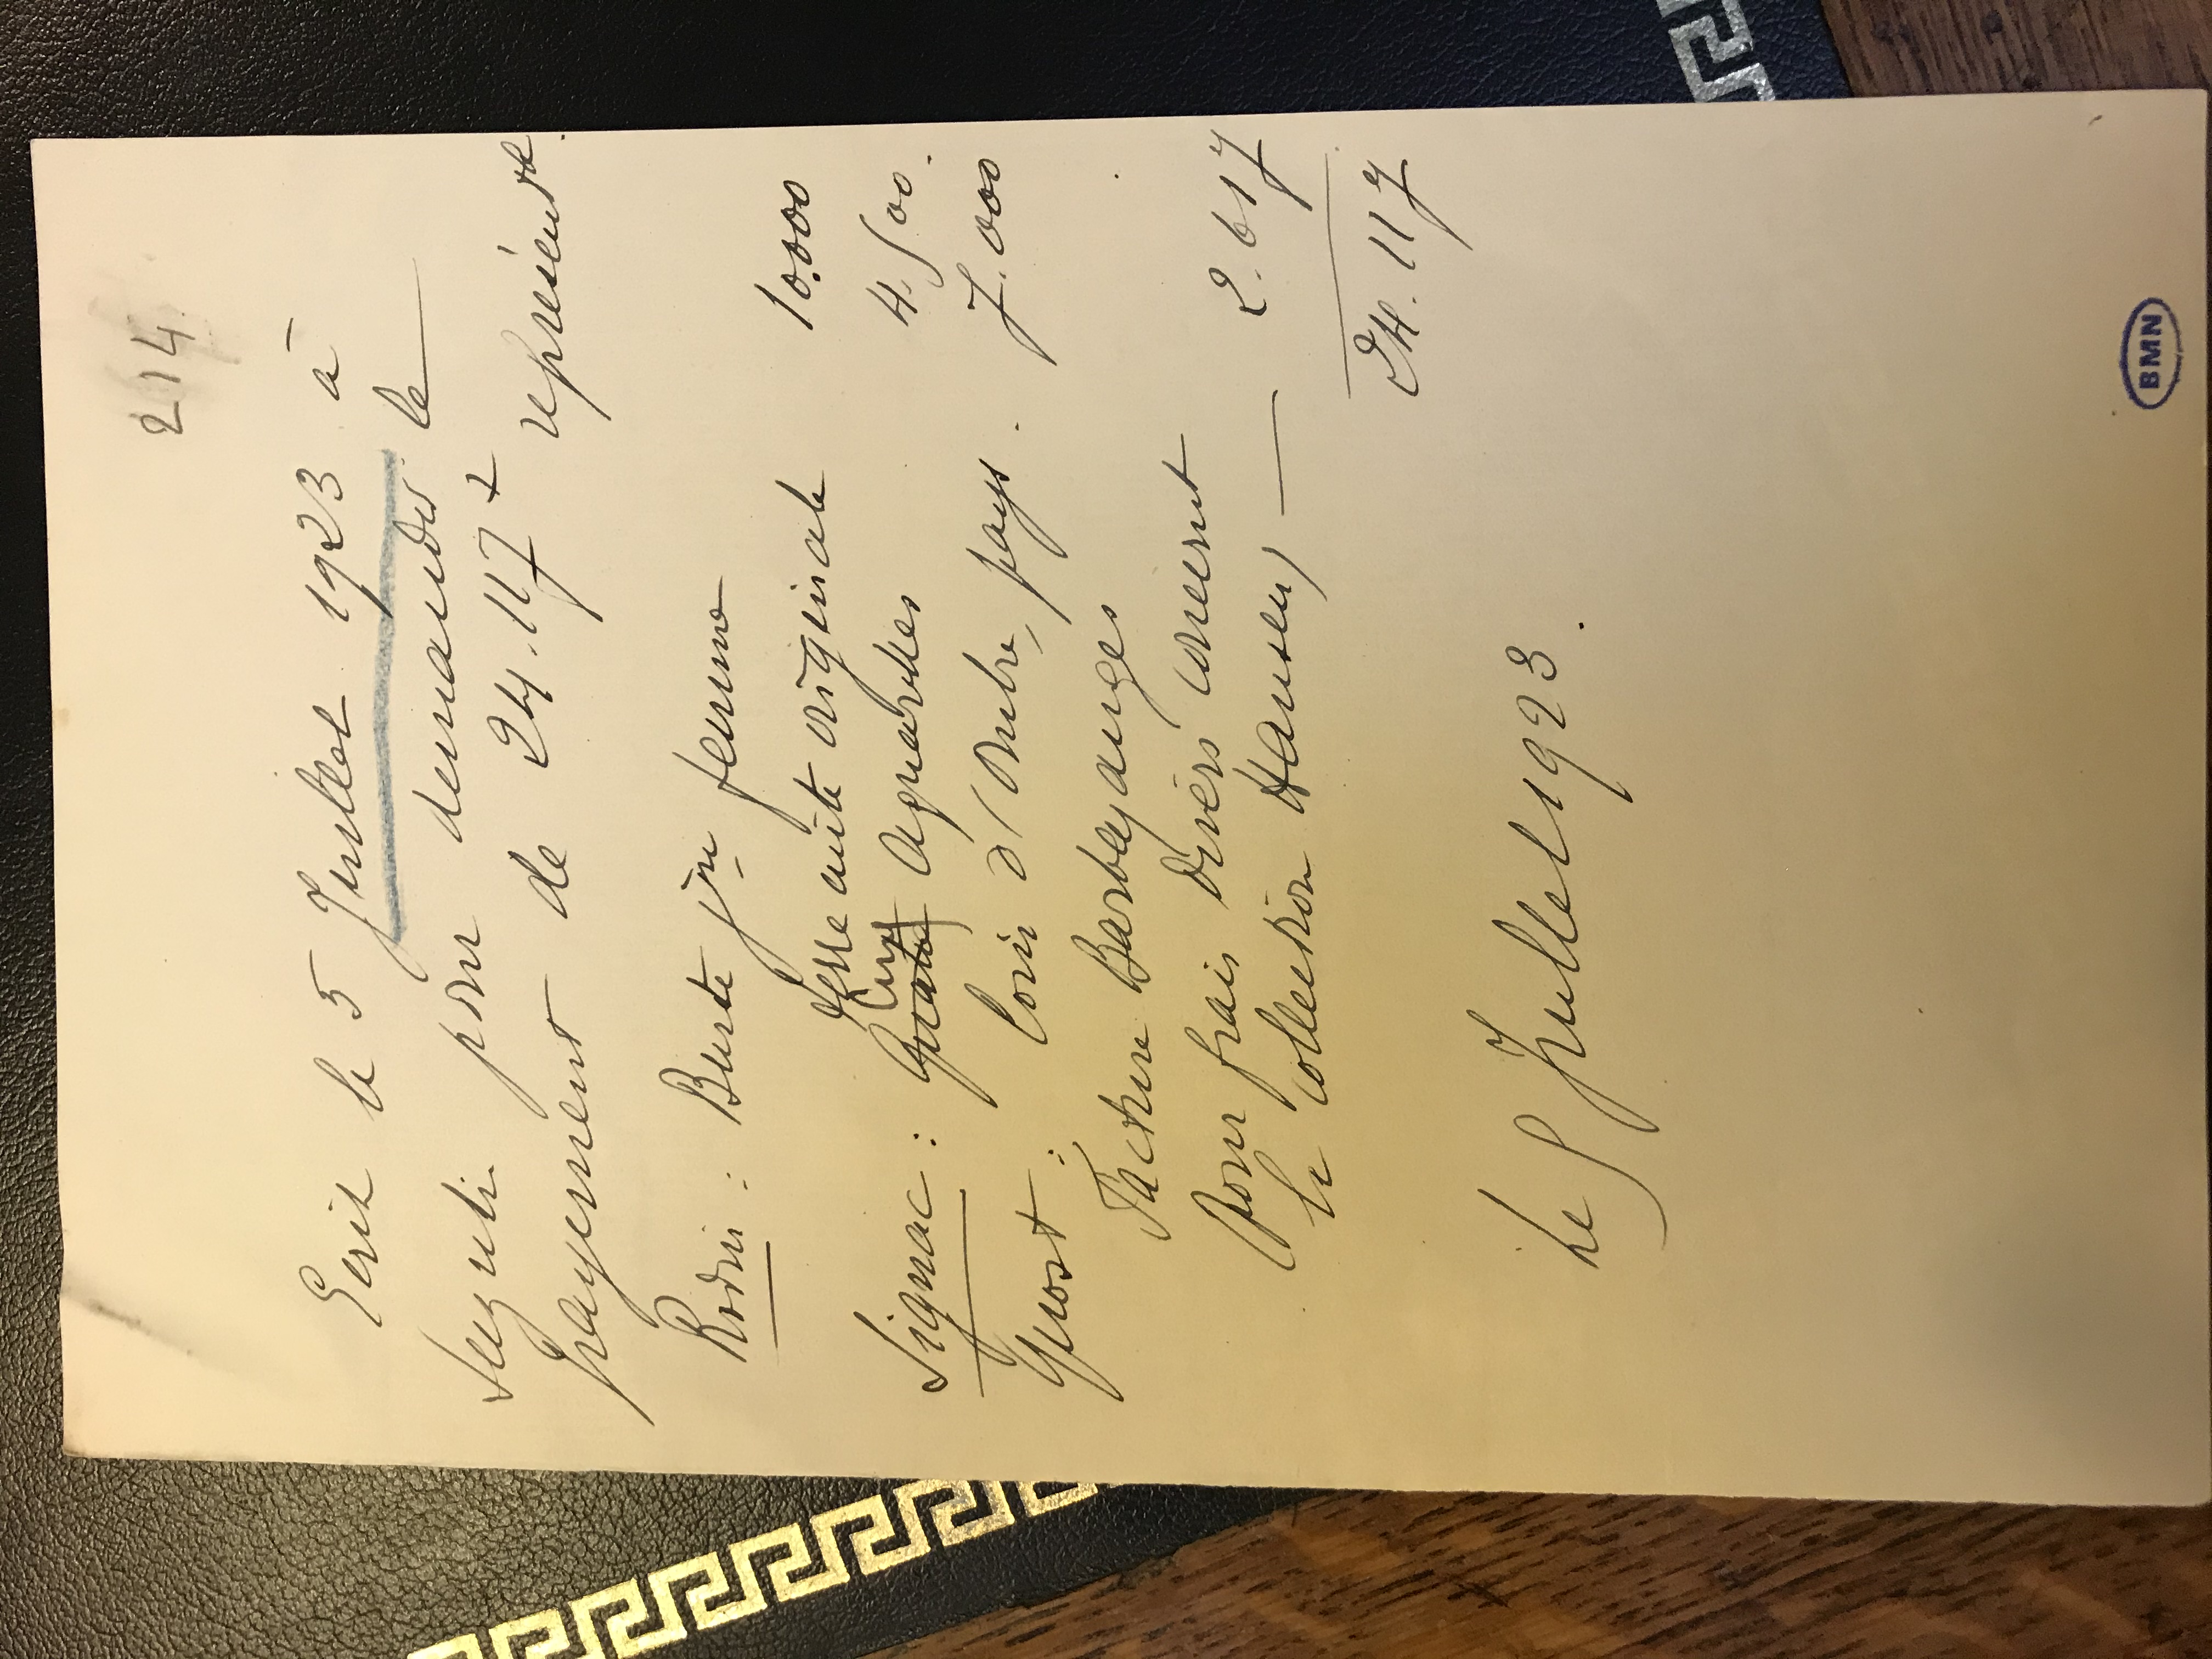 214
Ecrit le 5 Juillet 1923 à
Suzuki pour demander le
payement de 24.117 + représent.
Rodin : Buste jne femme
10.000
terre cuite originale
Cinq
Signac : Quatre Aquarelles
4.500.
Guost : Coin d'Ombre, pays.
7.000
Facture Barbazanges
pour frais divers concernt
la collection Hansen, — 2.617
24.117
Le 5 Juillet 1923.
BMN